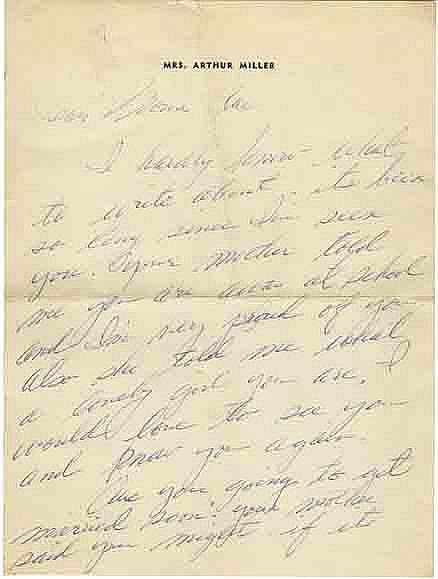 MRS. ARTHUR MILLER
Dear Mona Rae
I hardly know what
to write about. its been
so long since I've seen
you. Your mother told
me you are away at school
and I'm very proud of you
also she told me what
a lovely girl you are. I
would love to see you
and know you again.
Are you going to get
married soon? your mother
said you might if its